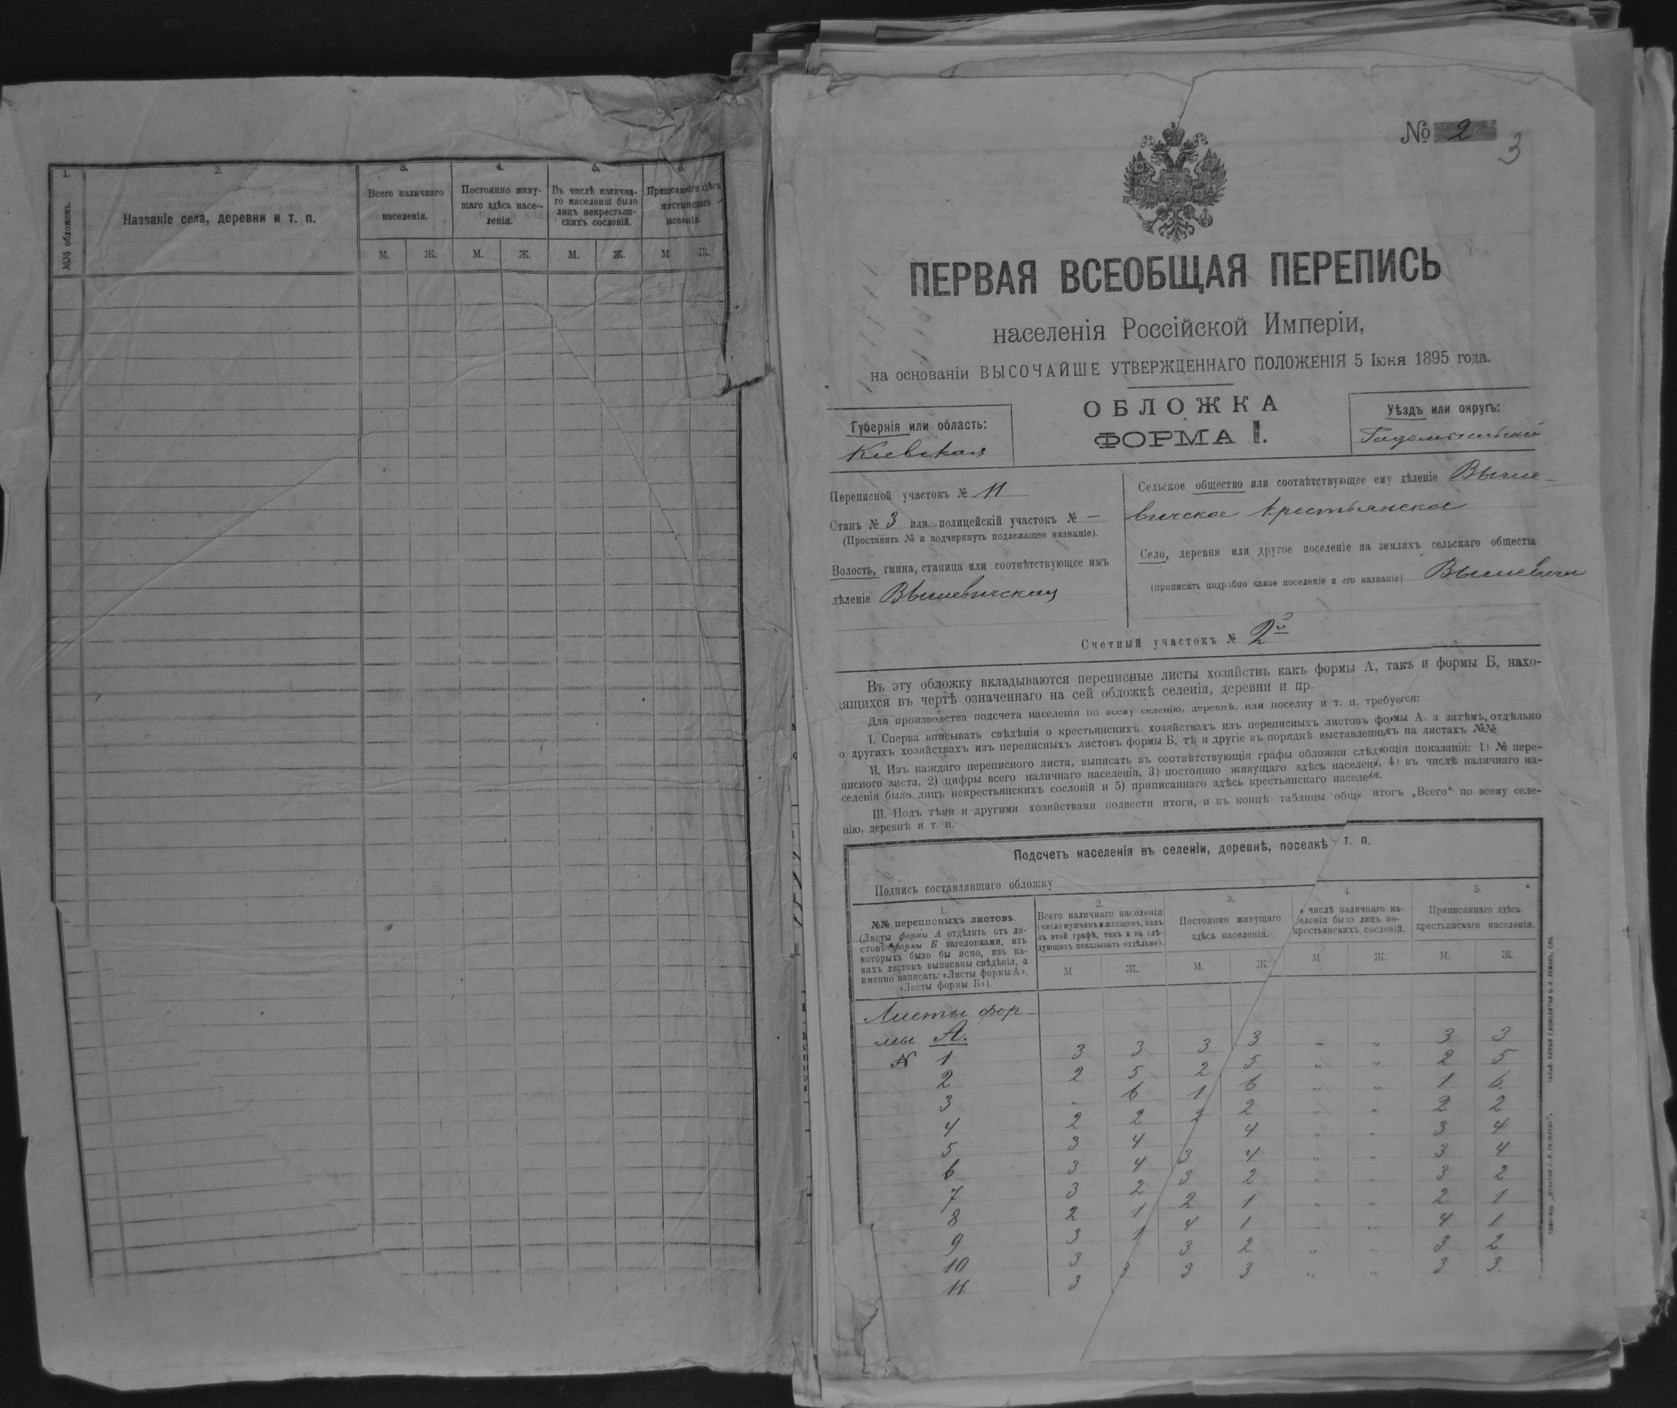 1. 2. 3. 4. 5. 6.
№№ обложекъ.
Названіе села, деревни и т. п.
Всего наличнаго населенія.
Постоянно живу-
щаго здѣсь насе-
ленія.
Въ числѣ налична-
го населенія было
лицъ некрестьян-
скихъ сословій.
Приписаннаго здѣсь
М. Ж. М. Ж. М. Ж. М Ж.
№ 2
3
ПЕРВАЯ ВСЕОБЩАЯ ПЕРЕПИСЬ
населенія Россійской Имперіи,
на основаніи ВЫСОЧАЙШЕ УТВЕРЖДЕННАГО ПОЛОЖЕНІЯ 5 Іюня 1895 года.
ОБЛОЖКА
ФОРМА I.
Губернія или область:
Кіевская
Уѣздъ или округъ:
Переписной участокъ № 11
Станъ № 3 или полицейскій участокъ № —
(Проставить № и подчеркнуть подлежащее названіе).
Волость, гмина, станица или соотвѣтствующее имъ
дѣленіе Вышевичская
Сельское общество или соотвѣтствующее ему дѣленіе Выше-
вичское крестьянское
Село, деревня или другое поселеніе на земляхъ сельскаго общества
(прописать подробно какое поселеніе и его названіе) Вышевичи
Счетный участокъ № 2й
Въ эту обложку вкладываются переписные листы хозяйствъ какъ формы А, такъ и формы Б, нахо-
дящихся въ чертѣ означеннаго на сей обложкѣ селенія, деревни и пр.
Для производства подсчета населенія по всему селенію, деревнѣ, или поселку и т. п. требуется:
I. Сперва вписывать свѣдѣнія о крестьянскихъ хозяйствахъ изъ переписныхъ листовъ формы А, а затѣмъ, отдѣльно
о другихъ хозяйствахъ изъ переписныхъ листовъ формы Б, тѣ и другіе въ порядкѣ выставленныхъ на листахъ №№
II. Изъ каждаго переписного листа, выписать въ соотвѣтствующія графы обложки слѣдующія показанія: 1) № пере-
писного листа, 2) цифры всего наличнаго населенія, 3) постоянно живущаго здѣсь населенія, 4) въ числѣ наличнаго на-
селенія было лицъ некрестьянскихъ сословій и 5) приписаннаго здѣсь крестьянскаго населенія.
III. Подъ тѣми и другими хозяйствами подвести итоги, и въ концѣ таблицы общ итогъ „Всего“ по всему селе-
нію, деревнѣ и т. п.
Подсчетъ населенія въ селеніи, деревнѣ, поселкѣ т. п.
Подпись составлявшаго обложку
1.
№№ переписныхъ листовъ.
(Листы формы А отдѣлить отъ ли-
стовъ формы Б заголовками, изъ
которыхъ было бы ясно, изъ ка-
кихъ листовъ выписаны свѣдѣнія, а
именно написать: «Листы формы А»,
«Листы формы Б»).
2.
Всего наличнаго населенія
(число мужчинъ и женщинъ, какъ
въ этой графѣ, такъ и въ слѣ-
дующихъ показывать отдѣльно).
3.
Постоянно живущаго
здѣсь населенія.
4.
числѣ наличнаго на-
селенія было лицъ не-
крестьянскихъ сословій.
5.
Приписаннаго здѣсь
крестьянскаго населенія.
М Ж. М. Ж. М Ж. М. Ж.
Листы фор-
мы А.
№ 1 3 3 3 3 „ „ 3 3
2 2 5 2 5 „ „ 2 5
3 „ 6 1 6 „ „ 1 6
4 2 2 2 2 „ „ 2 2
5 3 4 4 „ „ 3 4
6 3 4 3 4 „ „ 3 4
7 3 2 3 2 „ „ 3 2
8 2 1 2 1 „ „ 2 1
9 3 1 4 1 „ „ 4 1
10 3 3 2 „ „ 3 2
11 3 3 3 3 „ „ 3 3